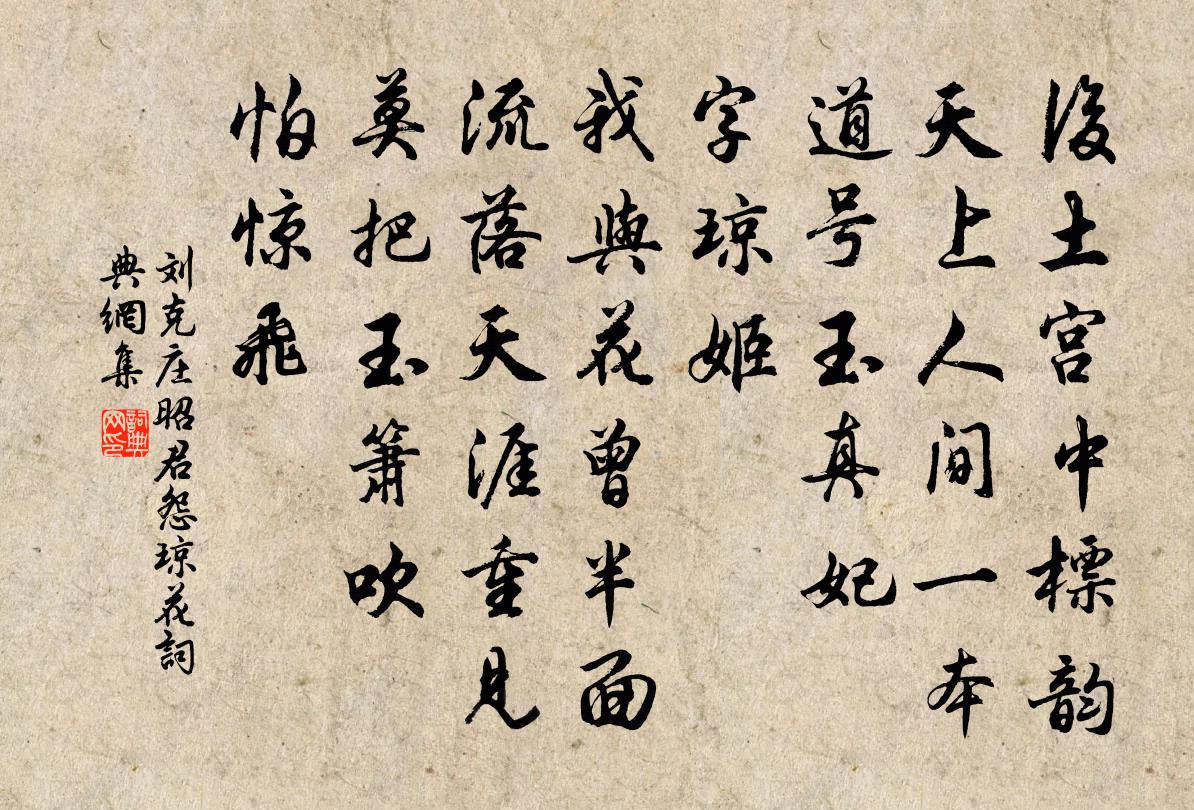 後土宫中標韵
天上人间一本
道号玉真妃
字琼姬
我與花曾半面
流落天涯重見
莫把玉箫吹
怕惊飛
刘克庄昭君怨琼花詞
典網集
詞典网印